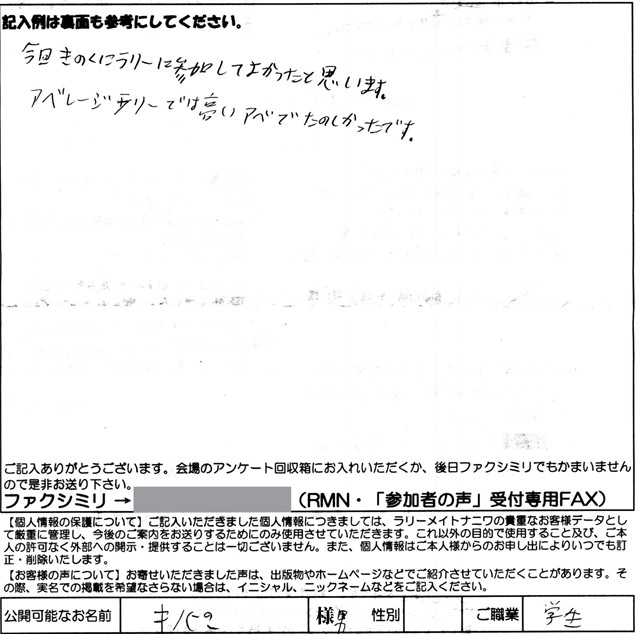 記入例は裏面も参考にしてください。
今回きのくにラリーに参加してよかったと思います。
アベレージラリーでは高いアベでたのしかったです。
ご記入ありがとうございます。会場のアンケート回収箱にお入れいただくか、後日ファクシミリでもかまいません
ので是非お送り下さい。
ファクシミリ → (RMN・「参加者の声」受付専用FAX)
【個人情報の保護について】ご記入いただきました個人情報につきましては、ラリーメイトナニワの貴重なお客様データとし
て厳重に管理し、今後のご案内をお送りするためにのみ使用させていただきます。これ以外の目的で使用すること及び、ご本
人の許可なく外部への開示・提供することは一切ございません。また、個人情報はご本人様からのお申し出によりいつでも訂
正・削除いたします。
【お客様の声について】お寄せいただきました声は、出版物やホームページなどでご紹介させていただくことがあります。そ
の際、実名での掲載を希望なさらない場合は、イニシャル、ニックネームなどをご記入ください。
公開可能なお名前 様 男 性別 ご職業 学生